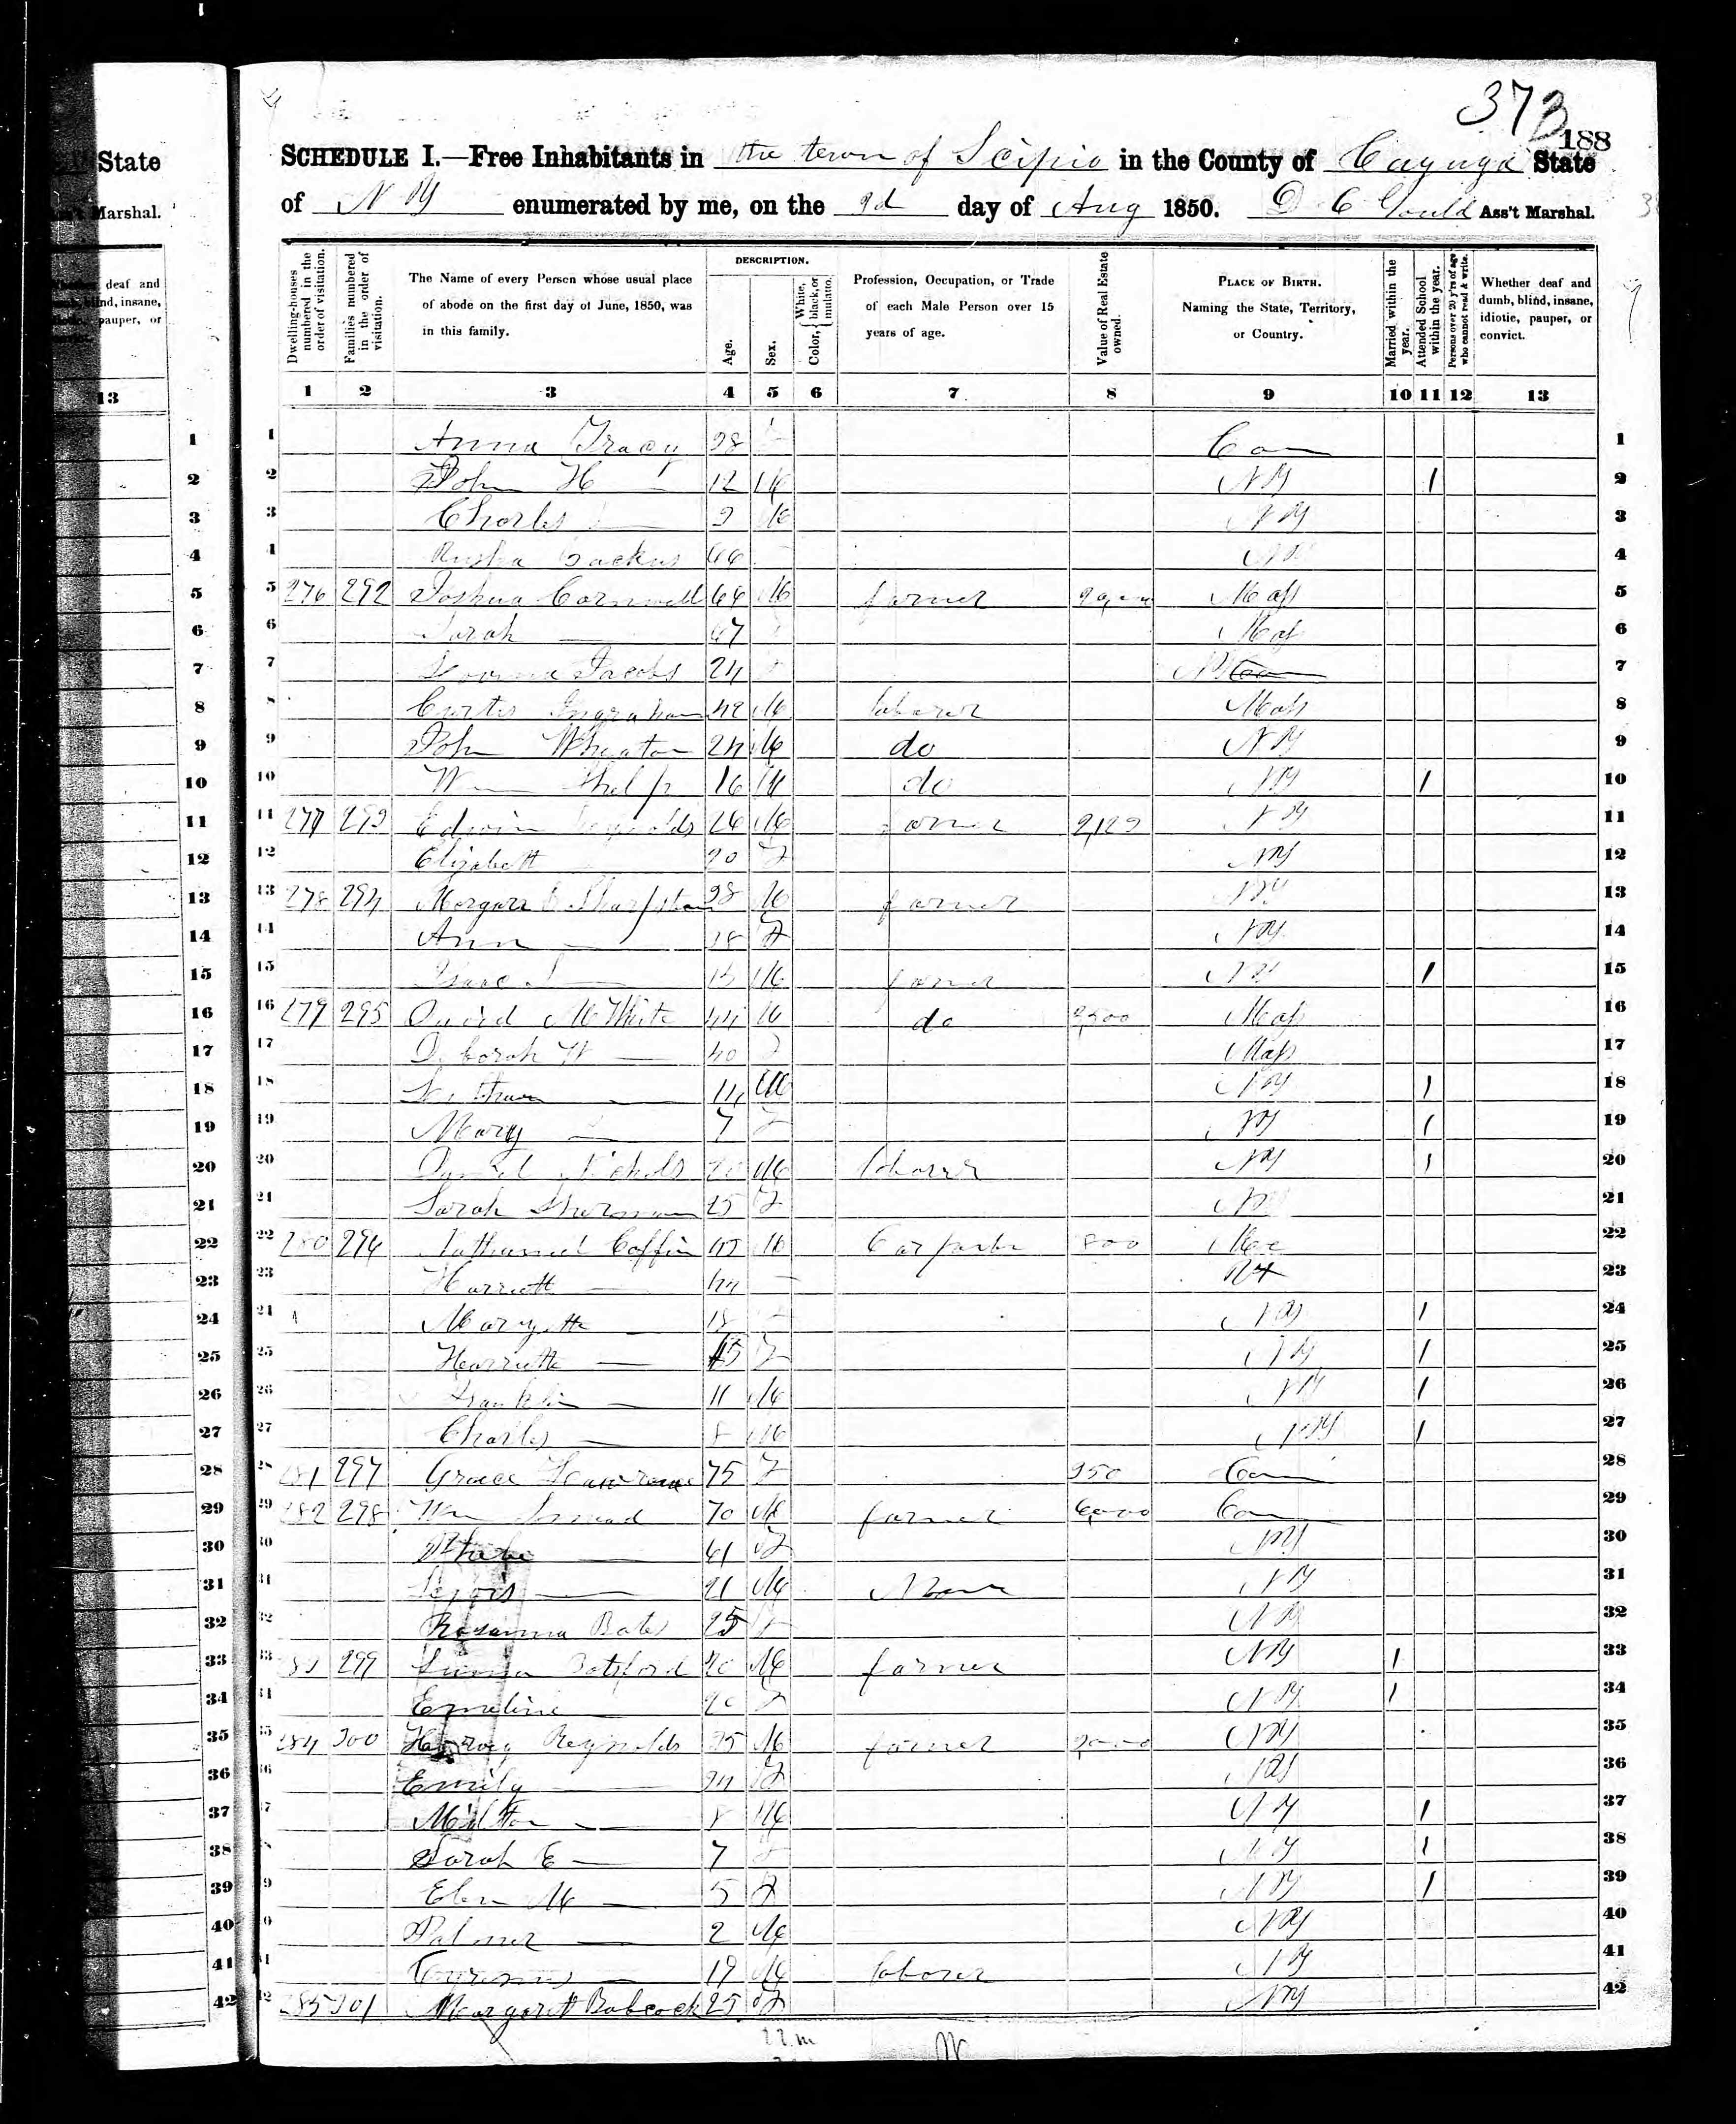 State
Marshal.
deaf and
blind, insane,
pauper, or
13
373
188
SCHEDULE I.—Free Inhabitants in the town of Scipio in the County of Cayuga State
of NY enumerated by me, on the 9d day of Aug 1850. D C Gould Ass't Marshal.
Dwelling-houses numbered in the order of visitation.
Families numbered in the order of visitation.
The Name of every Person whose usual place of abode on the first day of June, 1850, was in this family.
DESCRIPTION.
Age.
Sex.
Color, { White, black, or mulatto.
Profession, Occupation, or Trade of each Male Person over 15 years of age.
Value of Real Estate owned.
PLACE OF BIRTH. Naming the State, Territory, or Country.
Married within the year.
Attended School within the year.
Persons over 20 y'rs of age who cannot read & write.
Whether deaf and dumb, blind, insane, idiotic, pauper, or convict.
1 2 3 4 5 6 7 8 9 10 11 12 13
1 Anna Tracy 38 Con 1
2 John H — 12 M NY 1 2
3 Charles — 9 M NY 3
4 4
5 276 292 Joshua Cornwell 64 M farmer Mass 5
6 Sarah — 67 Mass 6
7 Jacobs 24 7
8 Curtis Ingraham 42 M laborer Mass 8
9 John Wheaton 24 M do NY 9
10 Wm 16 M do NY 1 10
11 277 293 Edwin Reynolds 26 M farmer NY 11
12 Elizabeth 20 F NY 12
13 278 294 Morgan 38 M farmer NY 13
14 Ann — 18 F NY 14
15 Isaac — 15 M farmer NY 1 15
16 279 295 David M White 44 M do Mass 16
17 Deborah W — 40 F Mass 17
18 — 14 M NY 1 18
19 Mary — 7 F NY 1 19
20 Nichols M laborer NY 1 20
21 Sarah Sherman 25 F NY 21
22 280 296 Nathaniel Coffin 45 M Carpenter 800 Me 22
23 Harriett — 44 NY 23
24 Maryette — 18 NY 1 24
25 Harriette — 15 F NY 1 25
26 Franklin — 11 M NY 1 26
27 Charles — 8 M NY 1 27
28 281 297 Grace 75 F 350 Con 28
29 282 298 Wm 70 M farmer 6,000 Con 29
30 Phebe — 61 F NY 30
31 — 21 M None NY 31
32 Rosanna Bates 25 F NY 32
33 299 Botsford M farmer NY 1 33
34 Emeline — 20 F NY 1 34
35 284 300 Harvey Reynolds 35 M farmer NY 35
36 Emily — 34 F NY 36
37 Milton — 8 M NY 1 37
38 Sarah E — 7 F NY 1 38
39 Elen M — 5 F NY 1 39
40 Palmer — 2 M NY 40
41 — 19 M laborer NY 41
42 285 301 Margarett Babcock 25 F NY 42
22 m